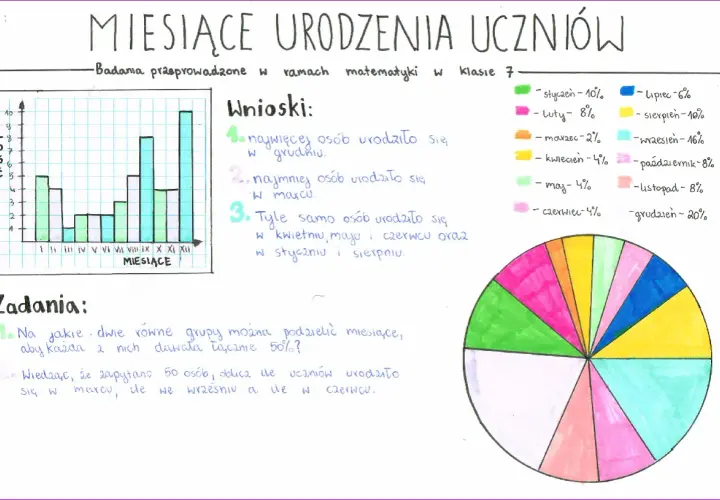 MIESIĄCE URODZENIA UCZNIÓW
Badania przeprowadzone w ramach matematyki w klasie 7
10
9
8
7
6
5
4
3
2
1
I II III IV V VI VII VIII IX X XI XII
MIESIĄCE
Wnioski:
1. największej osób urodziło się
w grudniu.
2. najmniej osób urodziło się
w marcu.
3. Tyle samo osób urodziło się
w kwietniu, maju i czerwcu oraz
w styczniu i sierpniu.
- styczeń - 10%
- luty - 8%
- marzec - 2%
- kwiecień - 4%
- maj - 4%
- czerwiec - 4%
- lipiec - 6%
- sierpień - 10%
- wrzesień - 16%
- październik - 8%
- listopad - 8%
- grudzień - 20%
Zadania:
1. Na jakie dwie równe grupy można podzielić miesiące,
aby każda z nich dawała łącznie 50%?
Wiedząc, że zapytano 50 osób, oblicz ile uczniów urodziło
się w marcu, ile we wrześniu a ile w czerwcu.